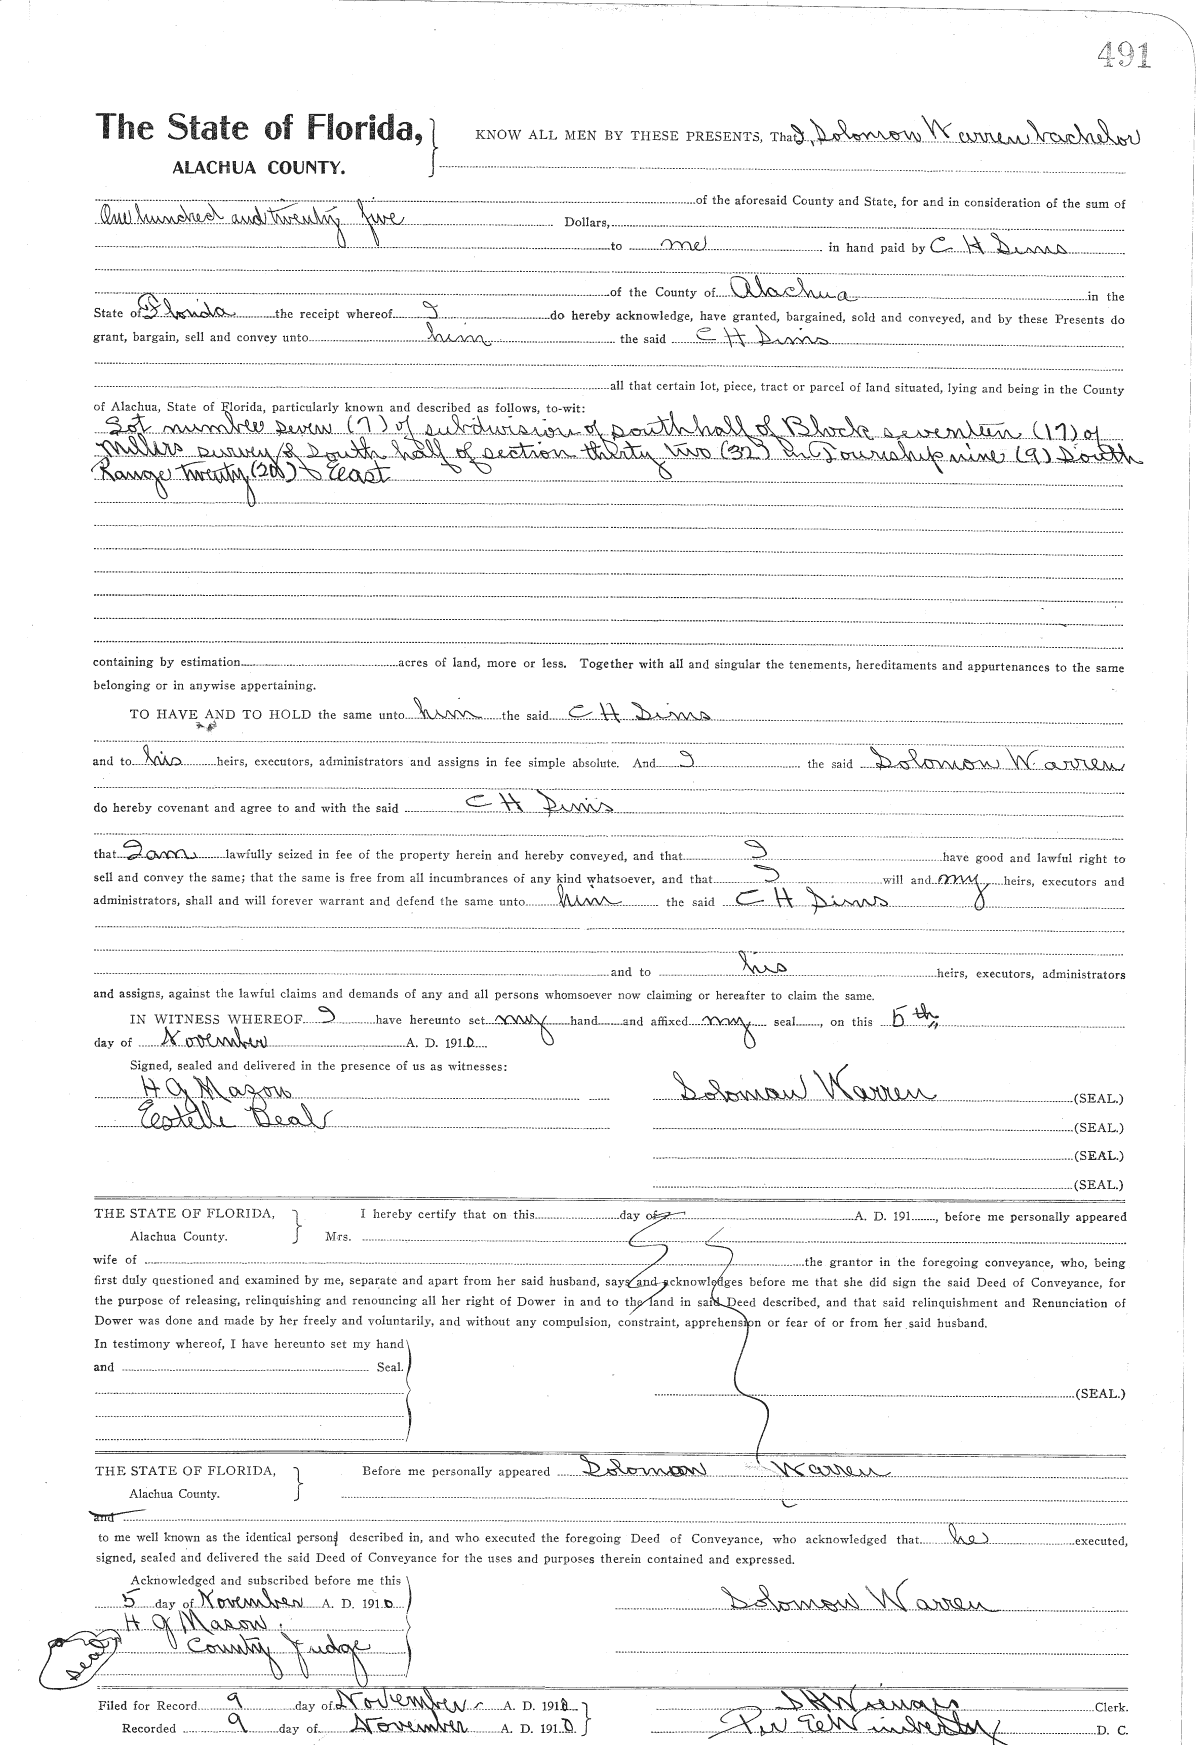 491
The State of Florida, KNOW ALL MEN BY THESE PRESENTS, That I, Solomon Warren bachelor
ALACHUA COUNTY.
of the aforesaid County and State, for and in consideration of the sum of
One hundred and twenty five Dollars,
to me in hand paid by C H Sims
of the County of Alachua in the
State of Florida the receipt whereof I do hereby acknowledge, have granted, bargained, sold and conveyed, and by these Presents do
grant, bargain, sell and convey unto him the said C H Sims
all that certain lot, piece, tract or parcel of land situated, lying and being in the County
of Alachua, State of Florida, particularly known and described as follows, to-wit:
Lot number seven (7) of subdivision of south half of Block seventeen (17) of
Millers survey of South half of section thirty two (32) in Township nine (9) South
Range twenty (20) East
containing by estimation acres of land, more or less. Together with all and singular the tenements, hereditaments and appurtenances to the same
belonging or in anywise appertaining.
TO HAVE AND TO HOLD the same unto him the said C H Sims
and to his heirs, executors, administrators and assigns in fee simple absolute. And I the said Solomon Warren
do hereby covenant and agree to and with the said C H Sims
that I am lawfully seized in fee of the property herein and hereby conveyed, and that I have good and lawful right to
sell and convey the same; that the same is free from all incumbrances of any kind whatsoever, and that I will and my heirs, executors and
administrators, shall and will forever warrant and defend the same unto him the said C H Sims
and to his heirs, executors, administrators
and assigns, against the lawful claims and demands of any and all persons whomsoever now claiming or hereafter to claim the same.
IN WITNESS WHEREOF I have hereunto set my hand and affixed my seal, on this 5th
day of November A. D. 1910
Signed, sealed and delivered in the presence of us as witnesses:
H G Mason Solomon Warren (SEAL.)
Estelle Beal (SEAL.)
(SEAL.)
(SEAL.)
THE STATE OF FLORIDA, I hereby certify that on this day of A. D. 191 , before me personally appeared
Alachua County. Mrs.
wife of the grantor in the foregoing conveyance, who, being
first duly questioned and examined by me, separate and apart from her said husband, says and acknowledges before me that she did sign the said Deed of Conveyance, for
the purpose of releasing, relinquishing and renouncing all her right of Dower in and to the land in said Deed described, and that said relinquishment and Renunciation of
Dower was done and made by her freely and voluntarily, and without any compulsion, constraint, apprehension or fear of or from her said husband.
In testimony whereof, I have hereunto set my hand
and Seal.
(SEAL.)
THE STATE OF FLORIDA, Before me personally appeared Solomon Warren
Alachua County.
and
to me well known as the identical person described in, and who executed the foregoing Deed of Conveyance, who acknowledged that he executed,
signed, sealed and delivered the said Deed of Conveyance for the uses and purposes therein contained and expressed.
Acknowledged and subscribed before me this
5 day of November A. D. 1910 Solomon Warren
H G Mason
Seal County Judge
Filed for Record 9 day of November A. D. 1910 Clerk.
Recorded 9 day of November A. D. 1910 Per Wimberly D. C.